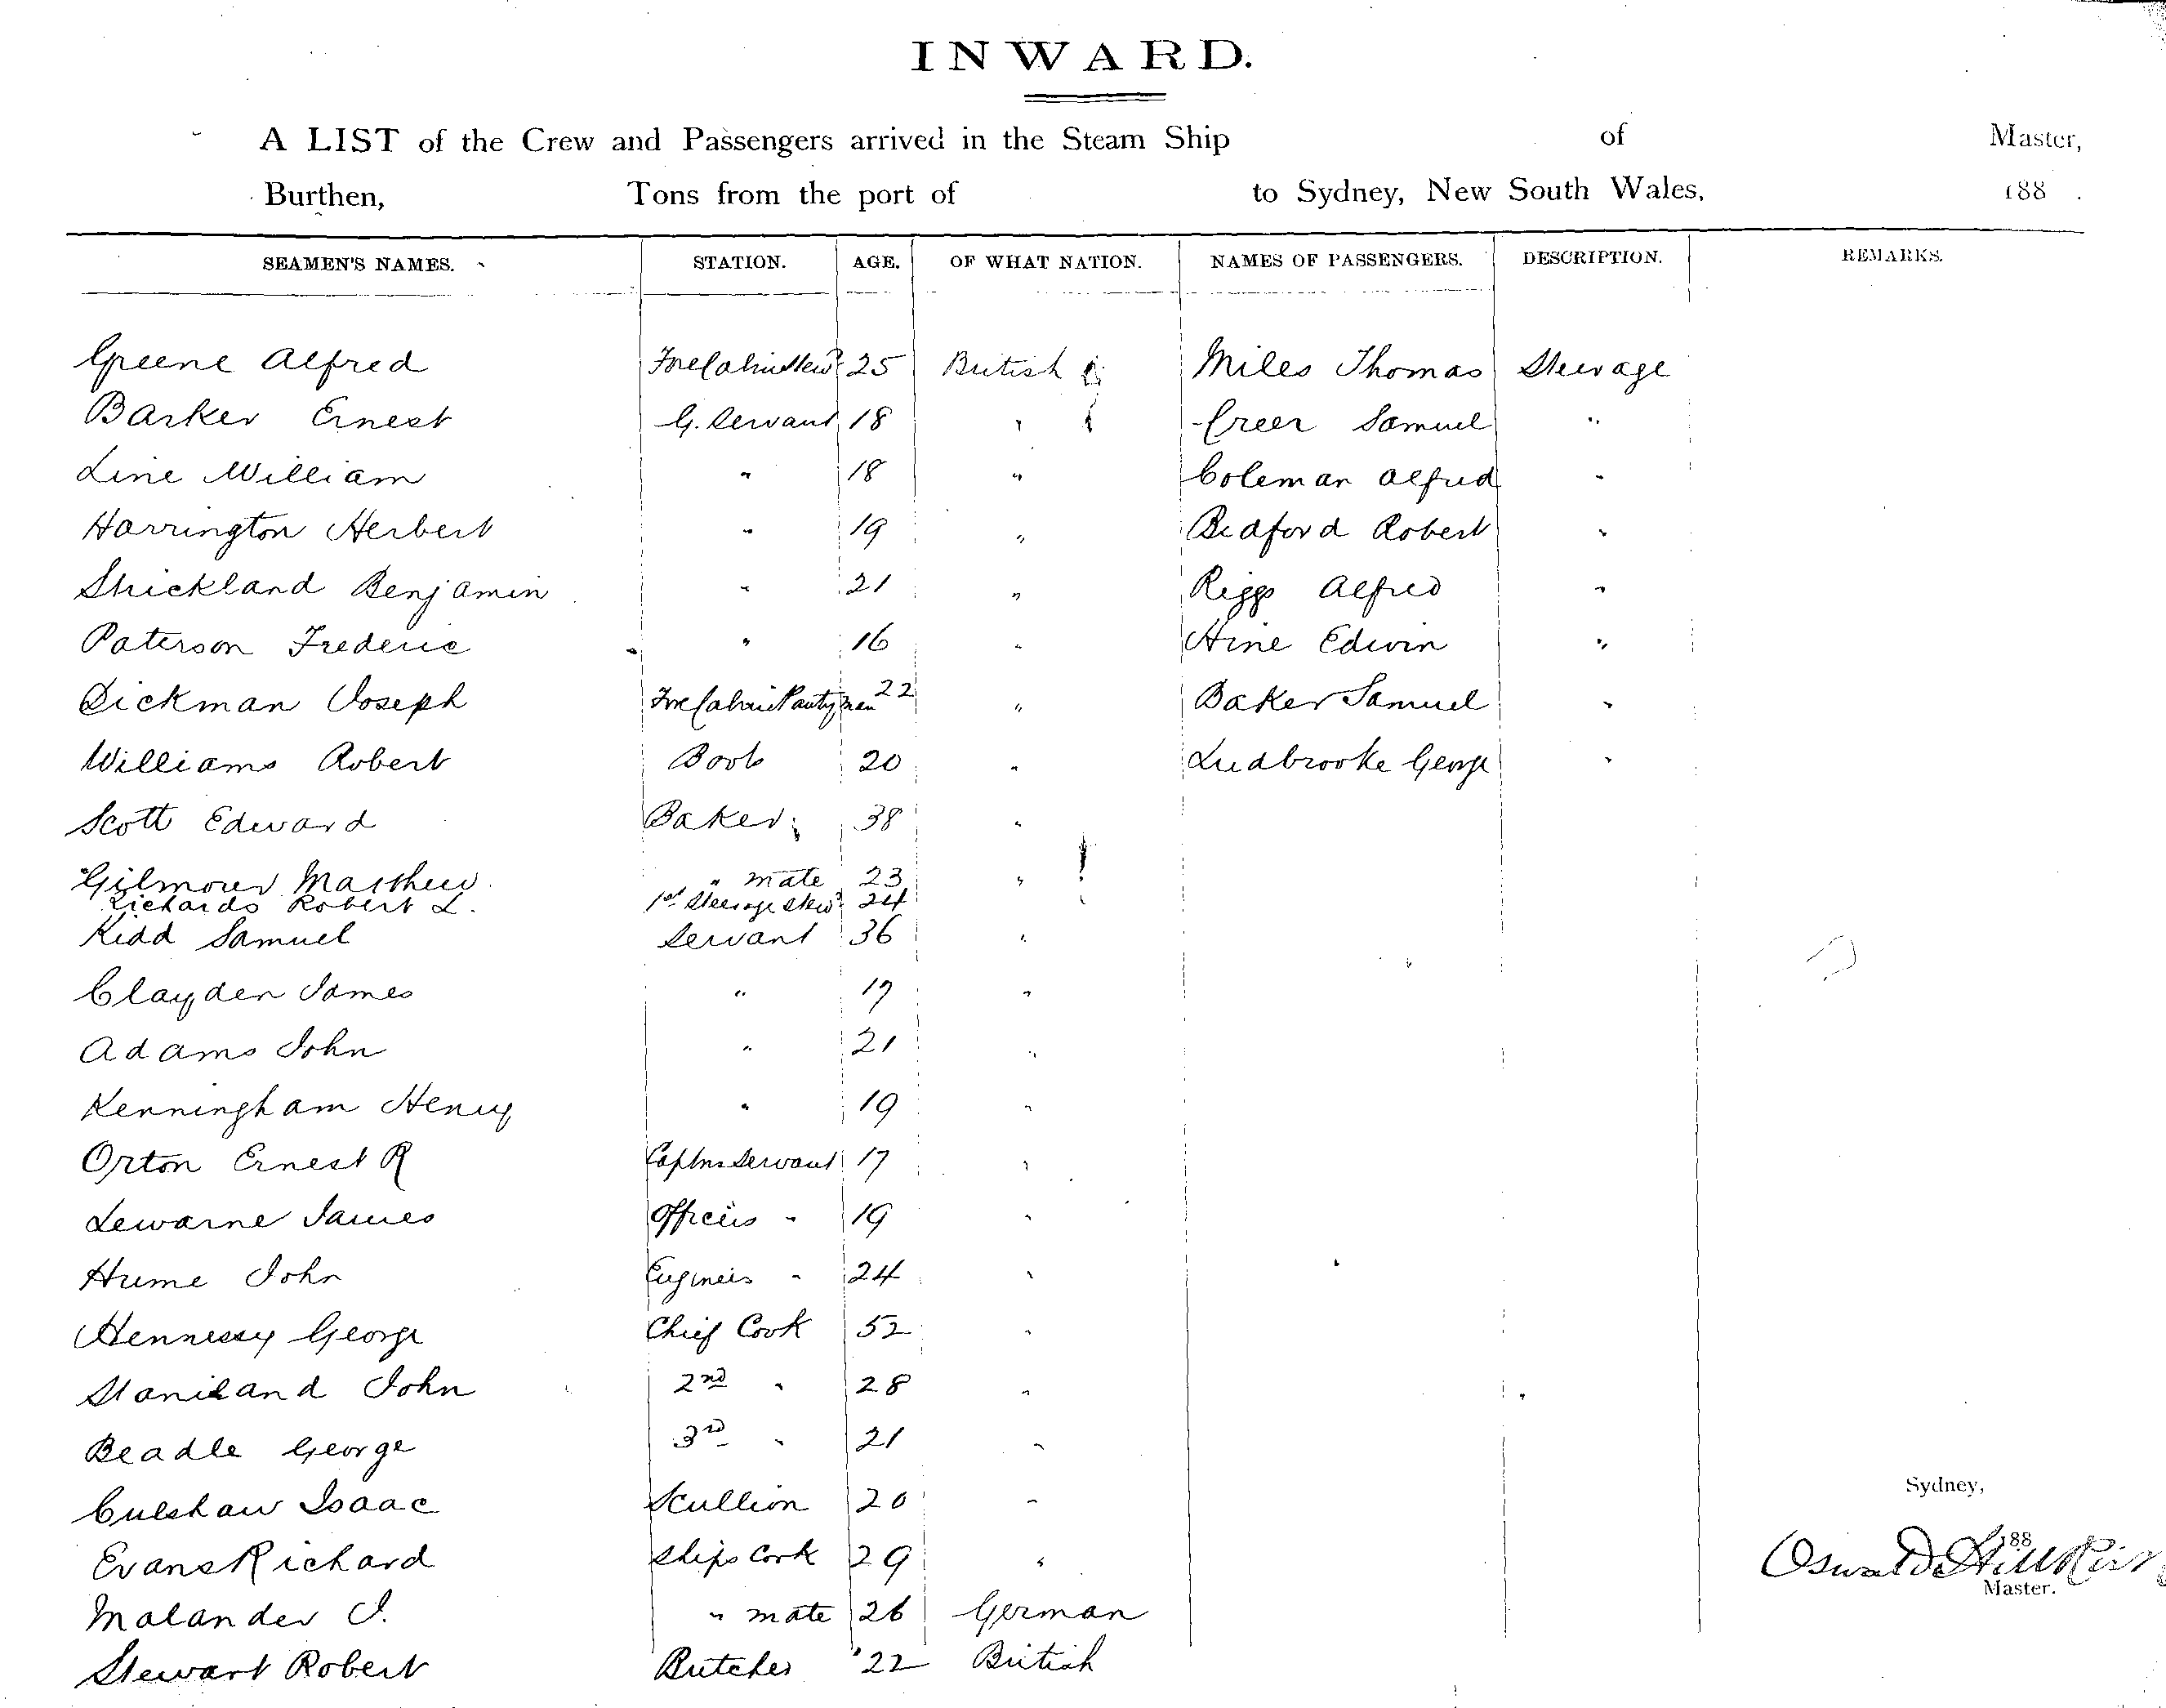 INWARD.
A LIST of the Crew and Passengers arrived in the Steam Ship of Master,
Burthen, Tons from the port of to Sydney, New South Wales, 188 .
SEAMEN'S NAMES. STATION. AGE. OF WHAT NATION. NAMES OF PASSENGERS. DESCRIPTION. REMARKS.
Greene Alfred ForeCabinStewd 25 British Miles Thomas Steerage
Barker Ernest G. Servant 18 " Creer Samuel "
Line William " 18 " Coleman Alfred "
Harrington Herbert " 19 " Bedford Robert "
Strickland Benjamin " 21 " Riggs Alfred "
Paterson Frederic " 16 " Hine Edwin "
Dickman Joseph ForeCabinPantryman 22 " Baker Samuel "
Williams Robert Boots 20 " Ludbrooke George "
Scott Edward Baker 38 "
Gilmour Matthew " mate 23 "
Richards Robert L. 1st Steerage Stewd 24
Kidd Samuel Servant 36 "
Clayden James " 17 "
Adams John " 21 "
Kenningham Henry " 19 "
Orton Ernest R Captns Servant 17 "
Lewarne James Officers " 19 "
Hume John Engineers " 24 "
Hennessy George Chief Cook 52 "
Staniland John 2nd " 28 "
Beadle George 3rd " 21 "
Culshaw Isaac Scullion 20 "
Sydney,
Evans Richard Ships Cook 29 "
188
Malander J. " mate 26 German
Master.
Stewart Robert Butcher 22 British